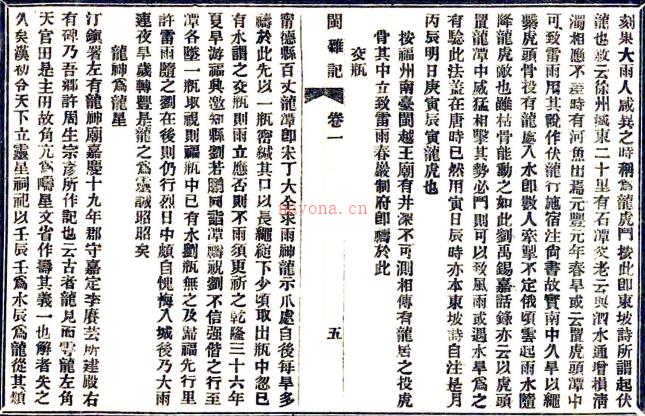 刻果大雨人咸異之時稱為龍虎鬥按此卽東坡詩所謂起伏
龍也敘云徐州城東二十里有石潭父老云與泗水通增損淸
濁相應不差時有河魚出焉元豐元年春旱或云置虎頭潭中
可致雷雨用其說作伏龍行施宿注尙書故實南中久旱以繩
繫虎頭骨投有龍處入水卽數人牽掣不定俄頃雲起雨水隨
降龍虎敵也雖枯骨能動之如此劉禹錫嘉話錄亦云以虎頭
置龍潭中威猛相擊其勢必鬥則可以致風雨或遇水旱為之
有驗此法蓋在唐時已然用寅日辰時亦本東坡詩自注是月
丙辰明日庚寅辰寅龍虎也
按福州南臺閩越王廟有井深不可測相傳有龍居之投虎
骨其中立致雷雨春巖制府卽禱於此
交瓶
閩雜記
卷一
五
甯德縣百丈龍潭卽宋丁大全求雨神龍示爪處自後每旱多
禱於此先以一瓶密緘其口以長繩縋下少頃取出瓶中忽已
有水謂之交瓶則雨立應否則不雨須更祈之乾隆三十六年
夏旱游福興遊知縣劉若鵬同詣潭禱祝劉不信強偕之行至
潭各墜一瓶取視則福瓶中已有水劉瓶無之及歸福先行里
許雷雨隨之劉在後則仍行烈日中頗自愧悔入城後乃大雨
連夜旱歲轉豐是龍之為靈誠昭昭矣
龍神為龍星
汀鎭署左有龍神廟嘉慶十九年郡守嘉定李賡芸所建殿右
有碑乃吾鄕許周生宗彥所作記也云古者龍見而雩龍左角
天官田是主田故角亢為疇星文省作壽其義一也解者失之
久矣漢初令天下立靈星祠祀以壬辰壬為水辰為龍從其類